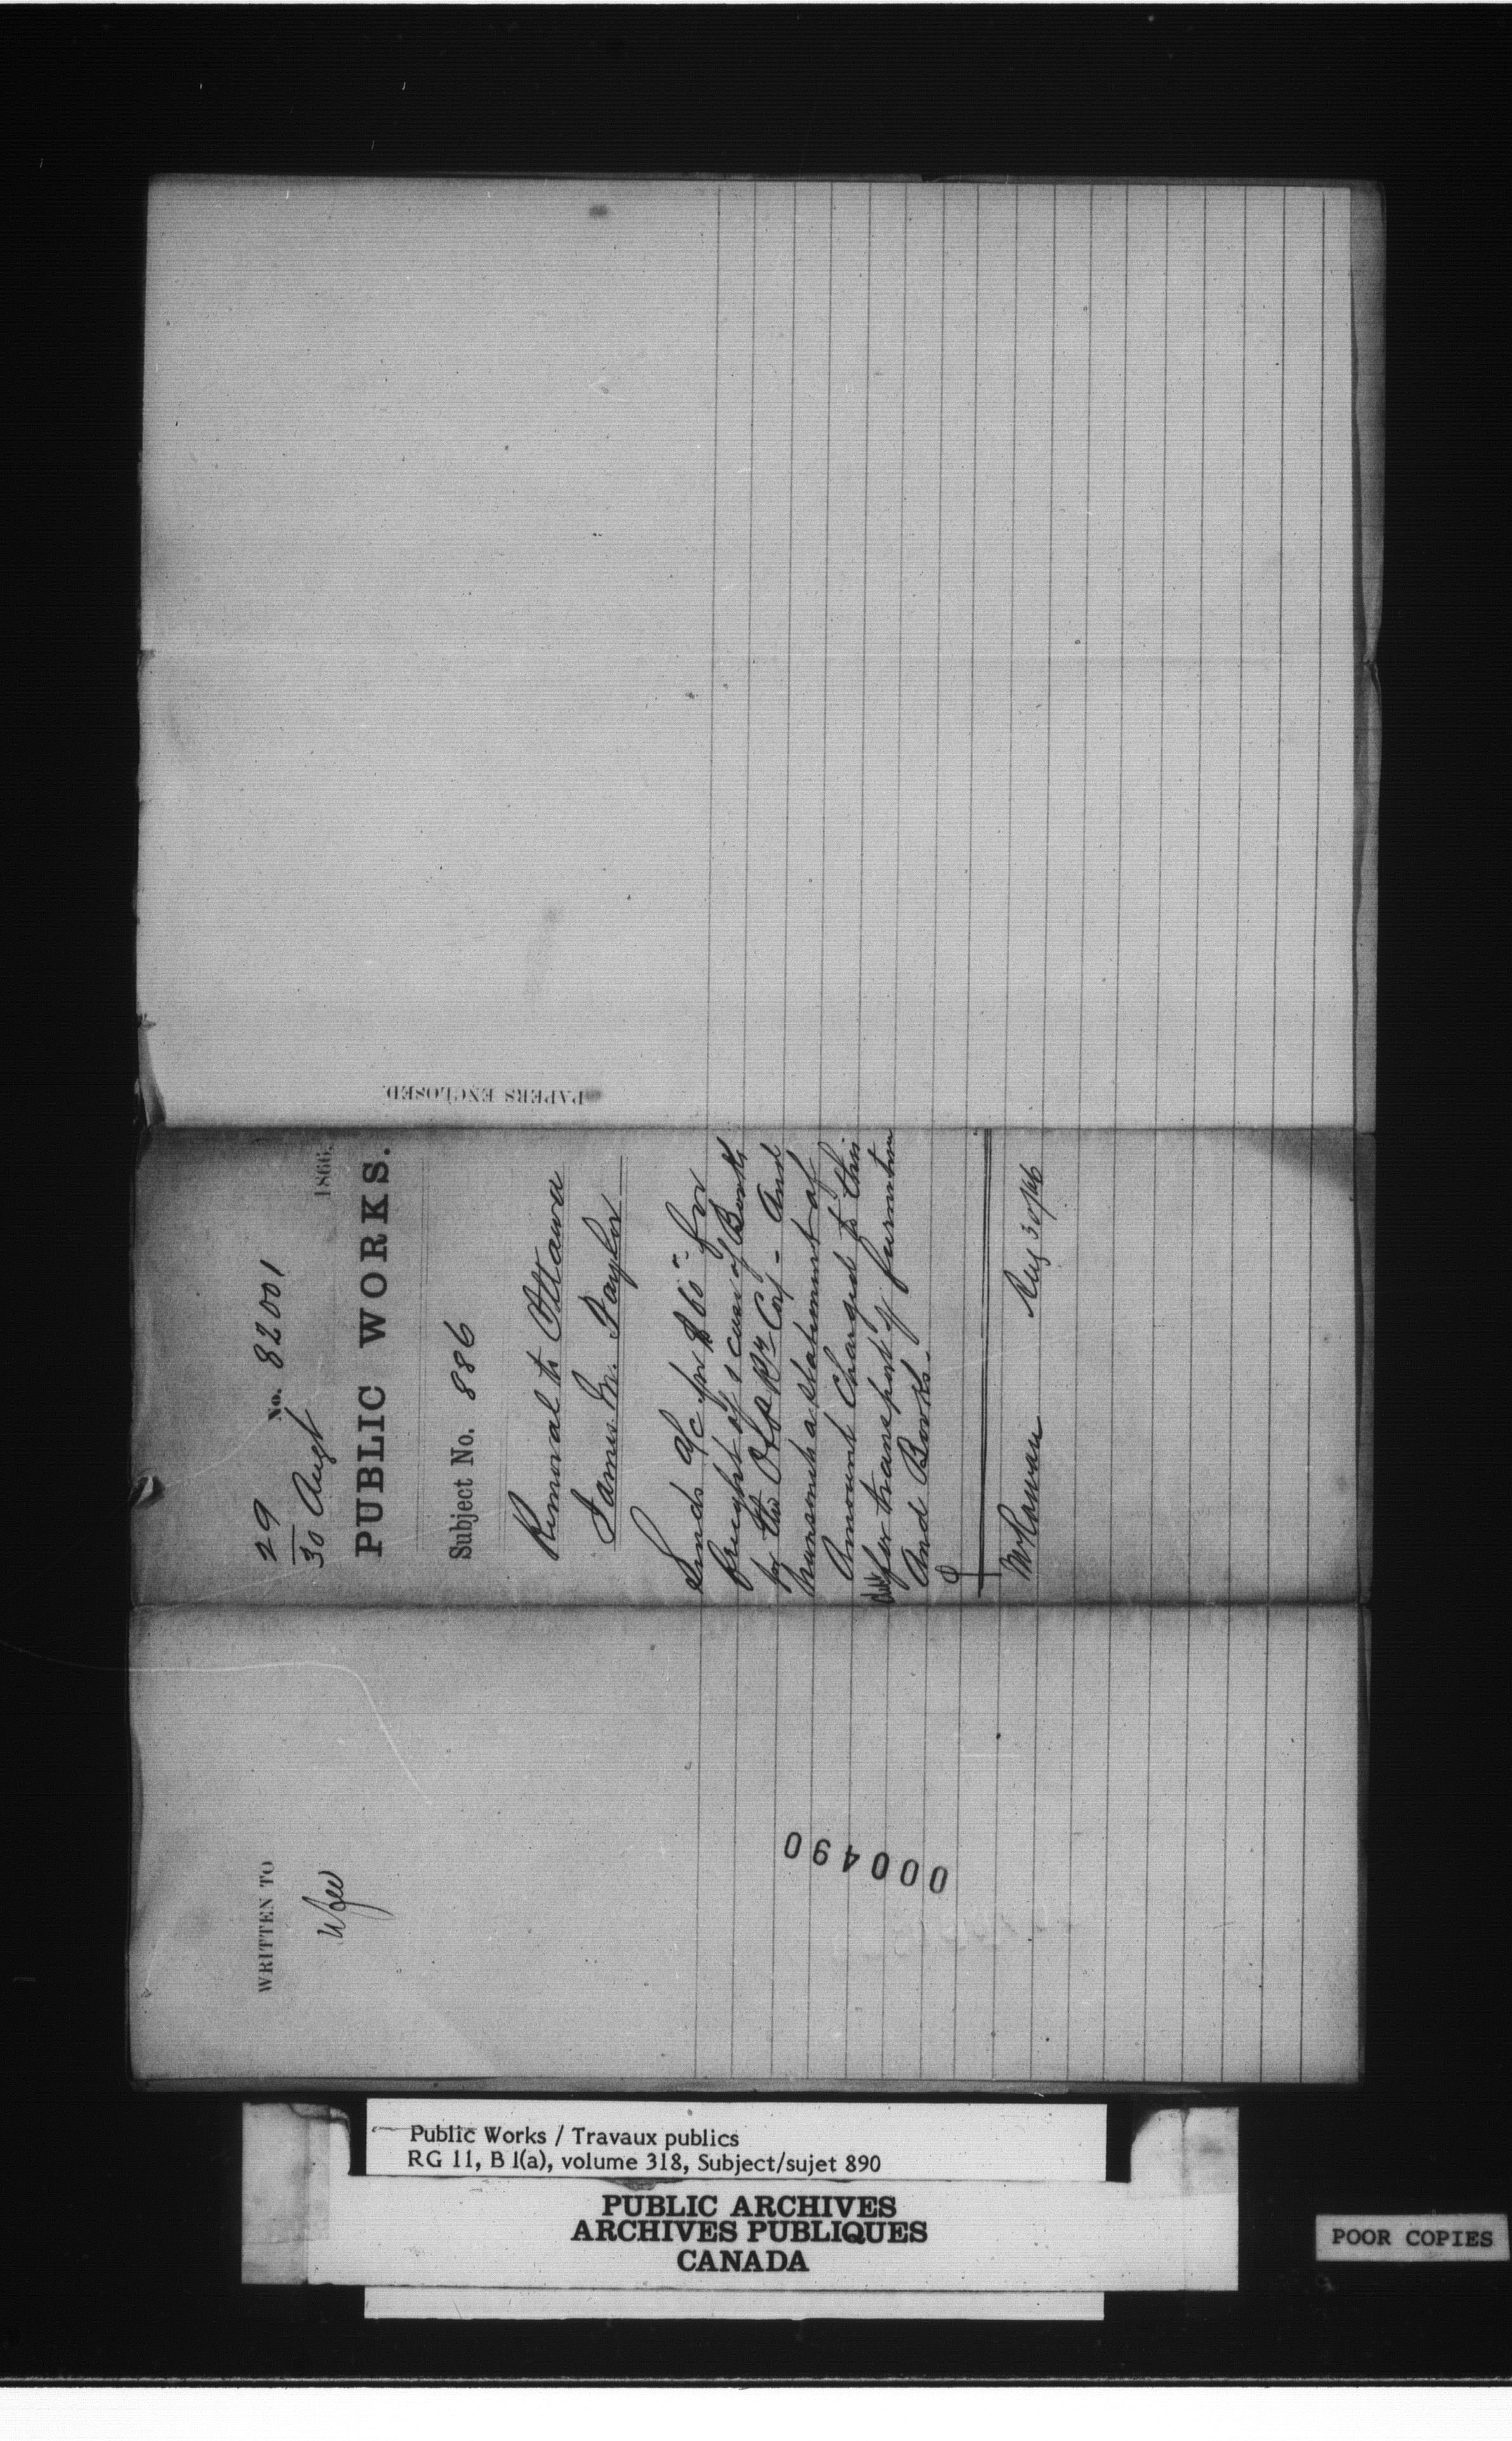 29
30 Augt
No. 82001
1866.
PUBLIC WORKS.
Subject No. 886
Removal to Ottawa
James M. Taylor
Sends a/c for $60 for
freight of 5 cases of Books
for the Ry Coy - And
transmits a statement of
Amount Charged to this
for transport of furniture
And Books.
Rowan Aug 30/66
PAPERS ENCLOSED.
WRITTEN TO
000490
Public Works / Travaux publics
RG 11, B 1(a), volume 318, Subject/sujet 890
PUBLIC ARCHIVES
ARCHIVES PUBLIQUES
CANADA
POOR COPIES